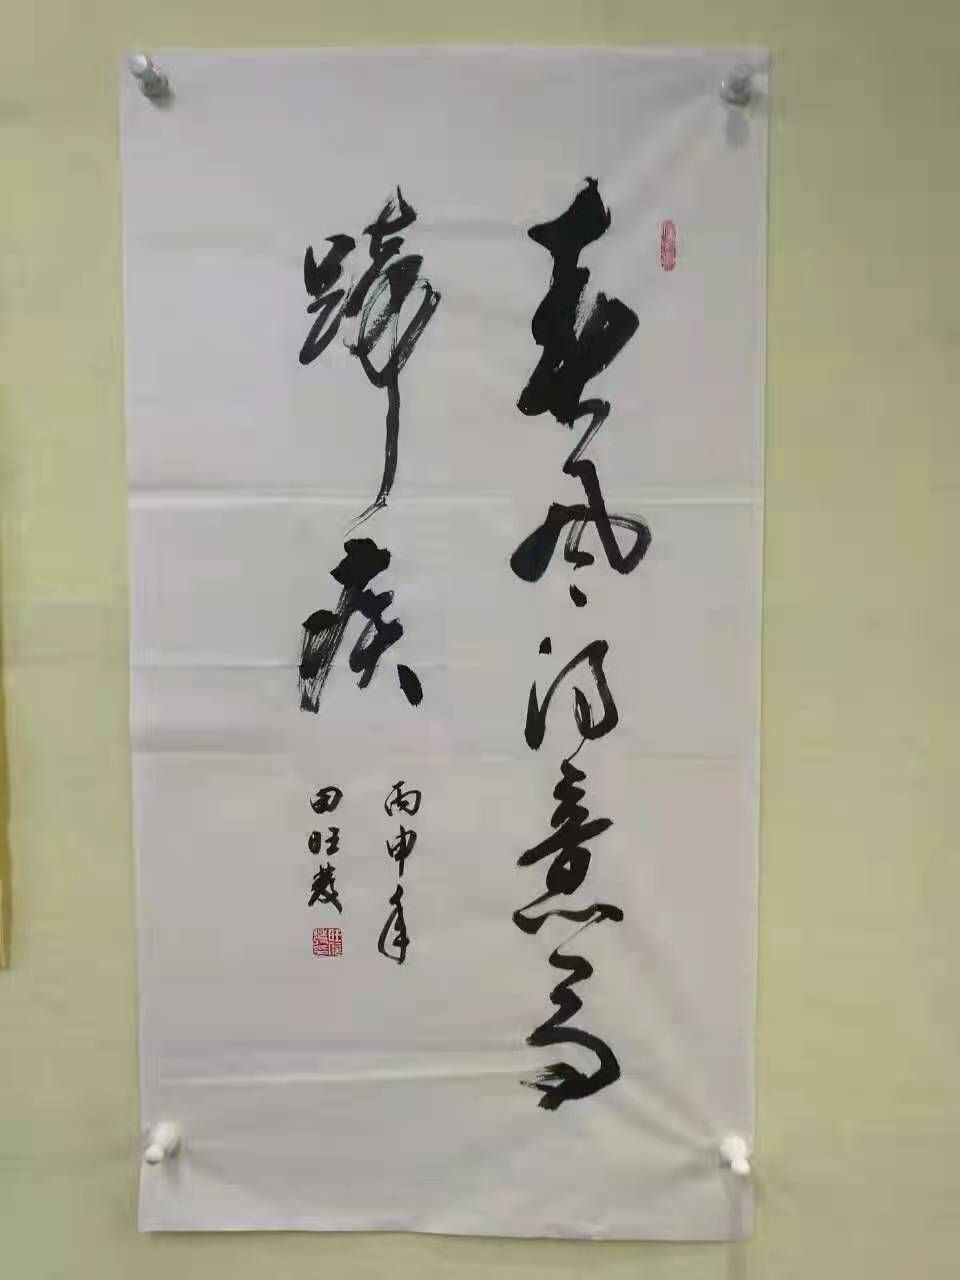 春风得意马
蹄疾
丙申年
田旺发